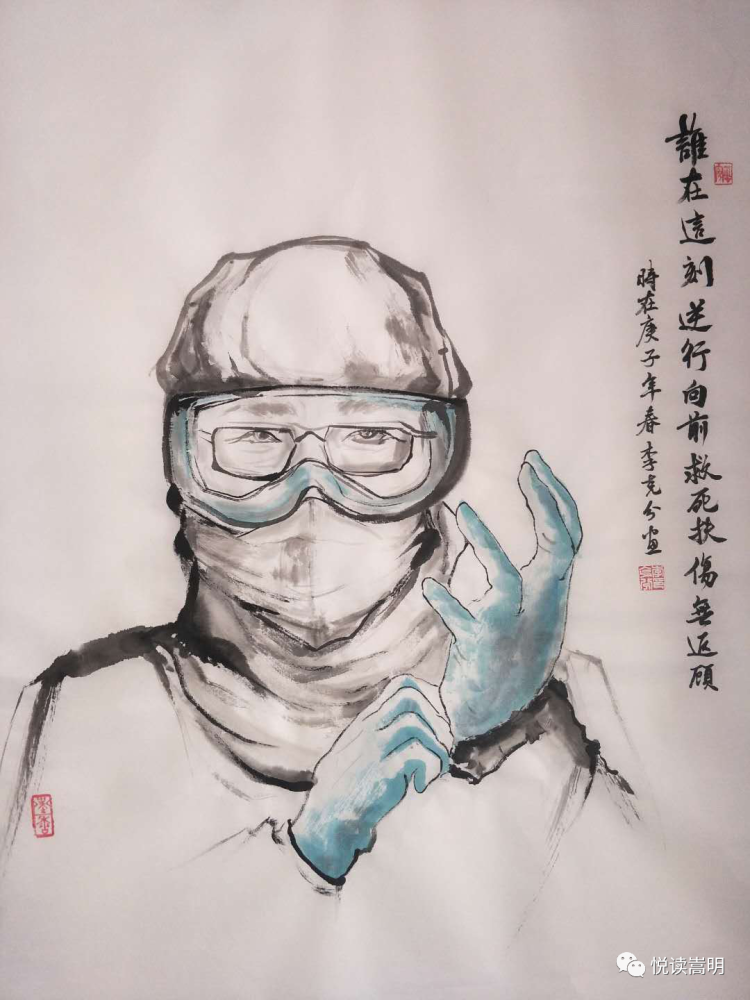 誰在這刻逆行向前救死扶傷無返顧
時在庚子年春李克分畫
悦读嵩明